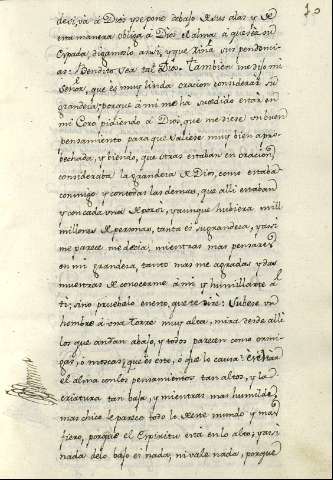 70
decir, va à Dios use pone abajo sus alas, y
esta manera obliga à Dios el alma à q̃ use su
Espada, digamoslo ansi, y que tiña sus pendenci-
as. Bendito sea tal Dios. Tambien me dijo mi
Señor, que es muy linda oracion considerar su
grandeça; porque à mi me ha sucedido estar en
mi Coro pidiendo à Dios, que me diese un buen
pensamiento para que saliese muy bien apro-
bechada, y viendo, que otras estaban en oracion,
consideraba la grandeça de Dios, como estaba
conmigo y con todas las demas, que alli estaban
y con cada una de por si, y aunque hubiera mill
millones de personas, tanta es su grandeça, y asi
me parece me decia, mientras mas pensares
en mi grandeça, tanto mas me agradas, y das
muestras de conocerme à mi y humillarte à
ti; sino pruebalo en esto, que te diré: Subese un
hombre à una Torre muy alta, mira desde alli
los que andan abajo, y todos parecen como ormi-
gas, ò moscas; que es esto, ò que lo causa? Estar
el alma con los pensamientos tan altos, y la
criatura tan baja, y mientras mas humilde,
mas chico le pareçe todo lo de este mundo y mas
fiero, porque el Espiritu està en lo alto; y asi
nada de lo bajo es nada, ni vale nada, porque